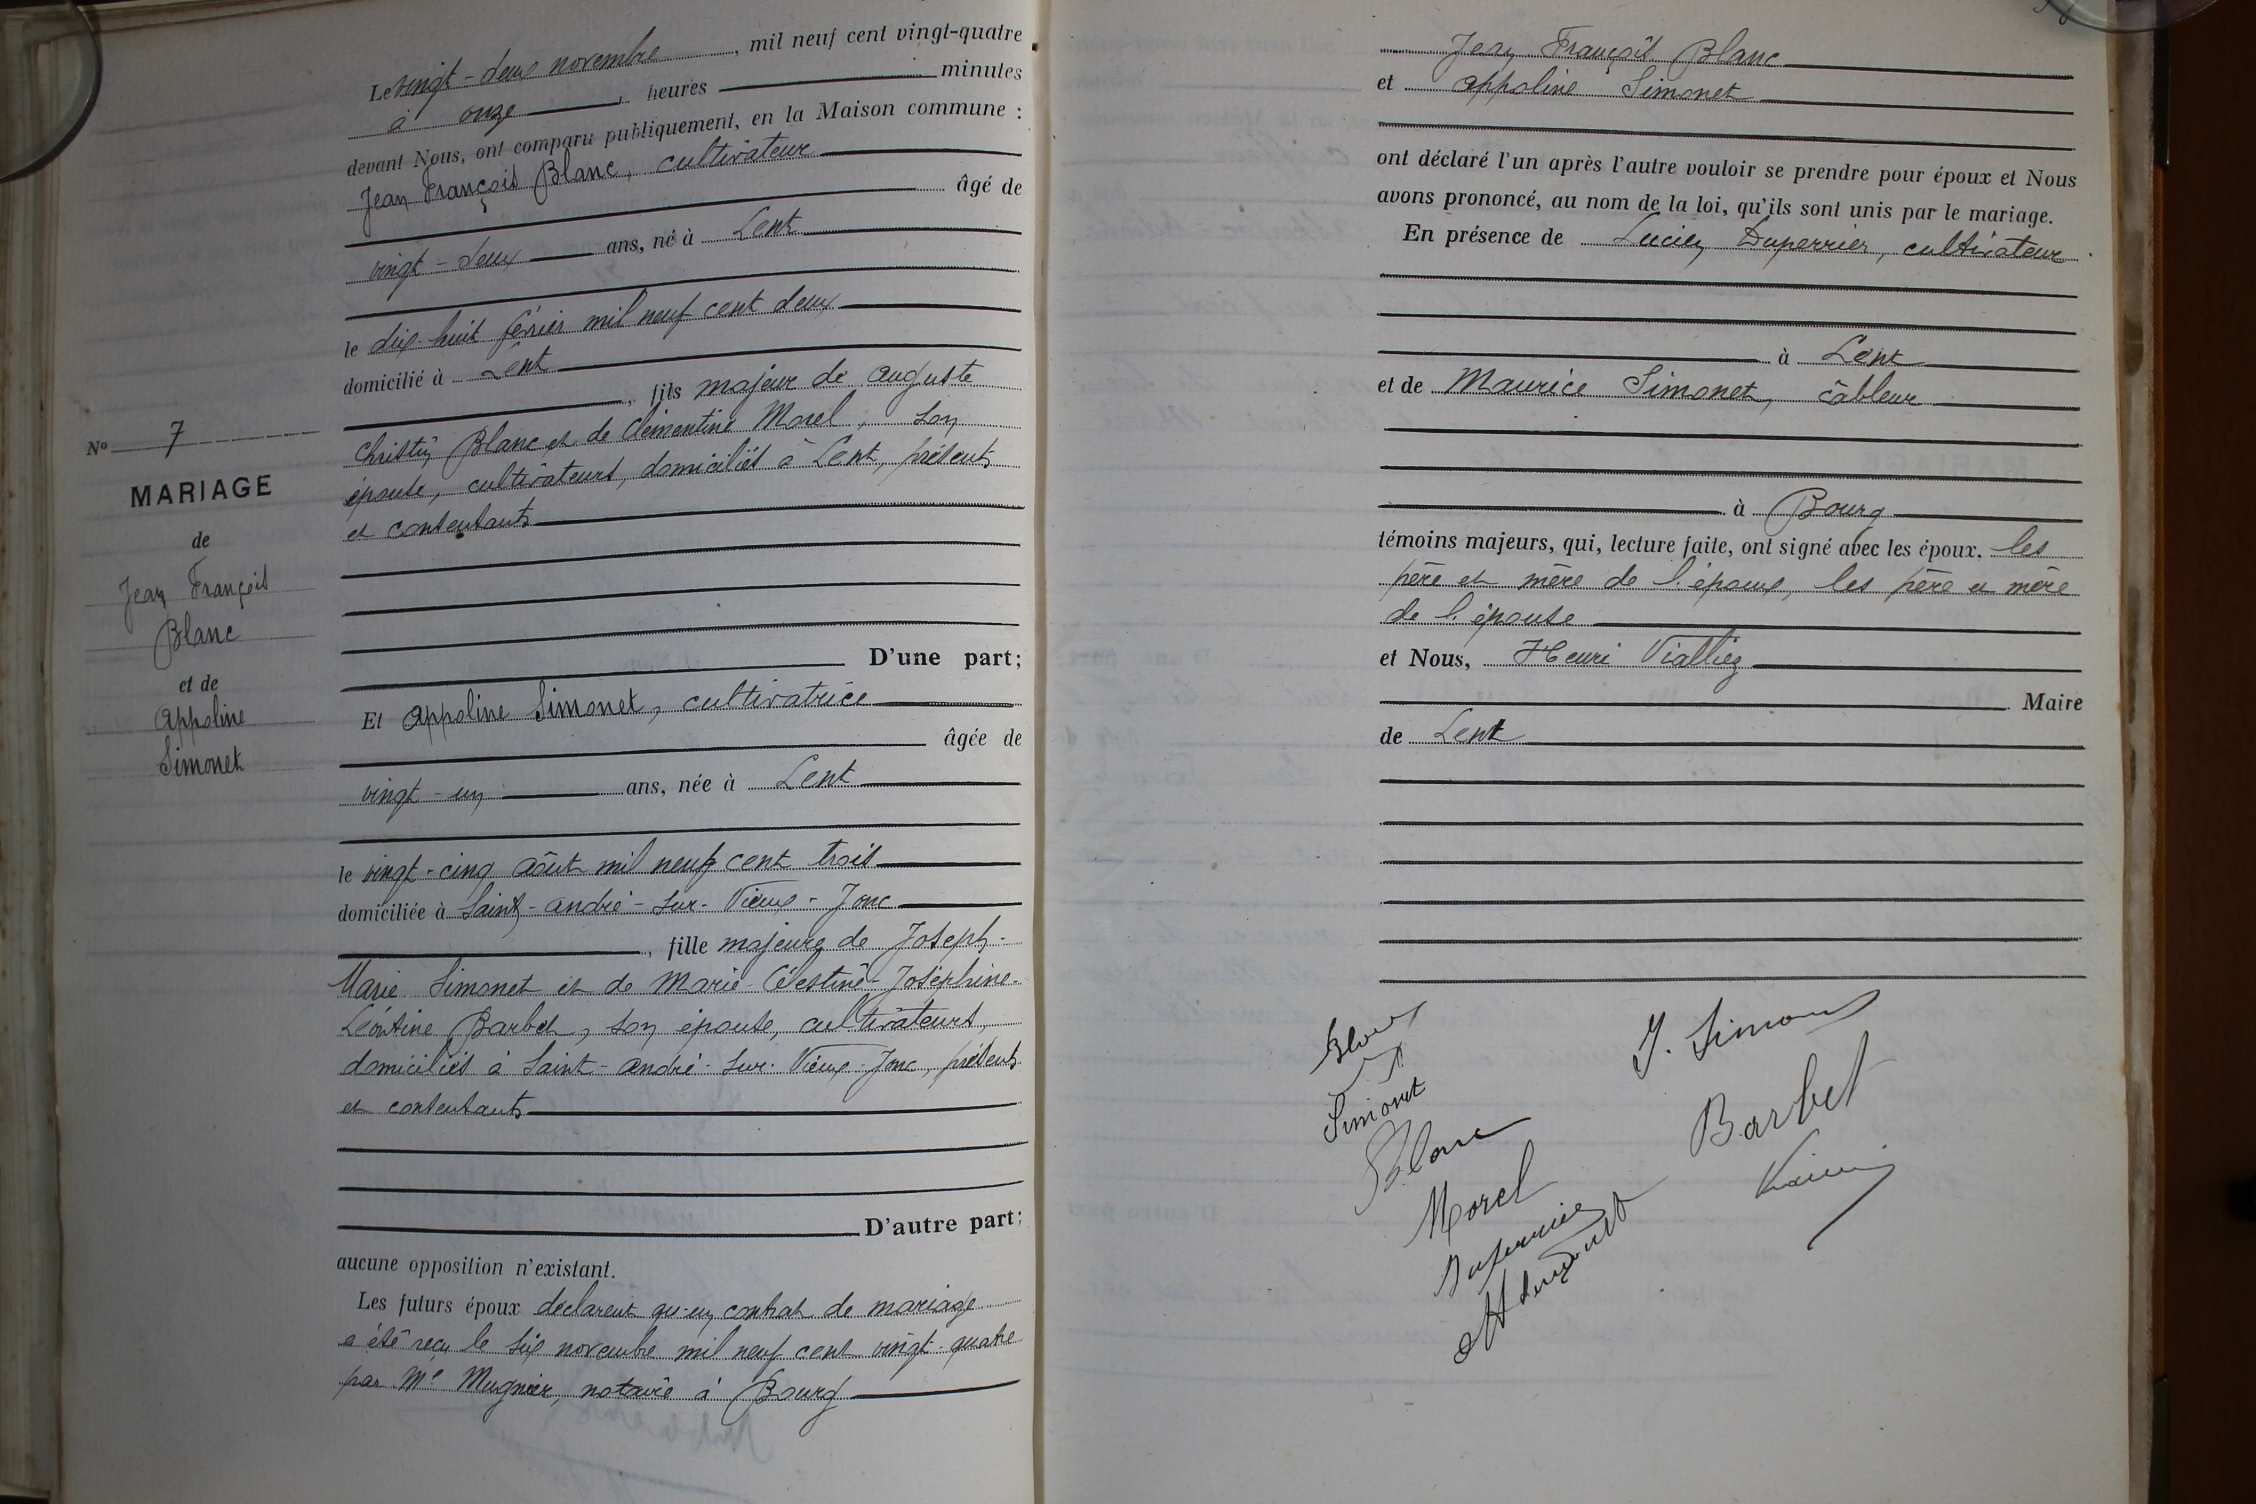 Le vingt-deux novembre, mil neuf cent vingt-quatre
à onze, heures minutes
devant Nous, ont comparu publiquement, en la Maison commune :
Jean François Blanc, cultivateur
âgé de
vingt-deux ans, né à Lent
le dix-huit février mil neuf cent deux
domicilié à Lent
, fils majeur de Auguste
Christin Blanc et de Clémentine Morel, son
épouse, cultivateurs, domiciliés à Lent, présents
et consentants
D'une part;
Et Appoline Simonet, cultivatrice
âgée de
vingt-un ans, née à Lent
le vingt-cinq août mil neuf cent trois
domiciliée à Saint-André-sur-Vieux-Jonc
, fille majeure de Joseph-
Marie Simonet et de Marie-Célestine-Joséphine-
Léontine Barbet, son épouse, cultivateurs,
domiciliés à Saint-André-sur-Vieux-Jonc, présents
et consentants
D'autre part;
aucune opposition n'existant.
Les futurs époux déclarent qu'un contrat de mariage
a été reçu le six novembre mil neuf cent vingt-quatre
par Me Mugnier, notaire à Bourg
No 7
MARIAGE
de
Jean François
Blanc
et de
Appoline
Simonet
Jean François Blanc
et Appoline Simonet
ont déclaré l'un après l'autre vouloir se prendre pour époux et Nous
avons prononcé, au nom de la loi, qu'ils sont unis par le mariage.
En présence de Lucien Duperrier, cultivateur
à Lent
et de Maurice Simonet, câbleur
à Bourg
témoins majeurs, qui, lecture faite, ont signé avec les époux, les
père et mère de l'époux, les père et mère
de l'épouse
et Nous, Henri Viallier
Maire
de Lent
Blanc
J. Simonet
Simonet
Barbet
Blanc
Morel
Duperrier